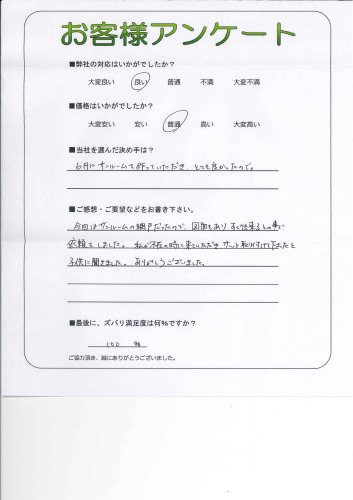 お客様アンケート
■弊社の対応はいかがでしたか?
大変良い 良い 普通 不満 大変不満
■価格はいかがでしたか?
大変安い 安い 普通 高い 大変高い
■当社を選んだ決め手は?
6月にサンルームを作っていただき、とても良かったので。
■ご感想・ご要望などをお書き下さい。
今回はサンルームの網戸だったので、図面もあり すぐ出来るとの事で
依頼をしました。私が不在の時に来ていただき サッと取り付けて下さったと
子供に聞きました。ありがとうございました。
■最後に、ズバリ満足度は何%ですか?
100 %
ご協力頂き、誠にありがとうございました。